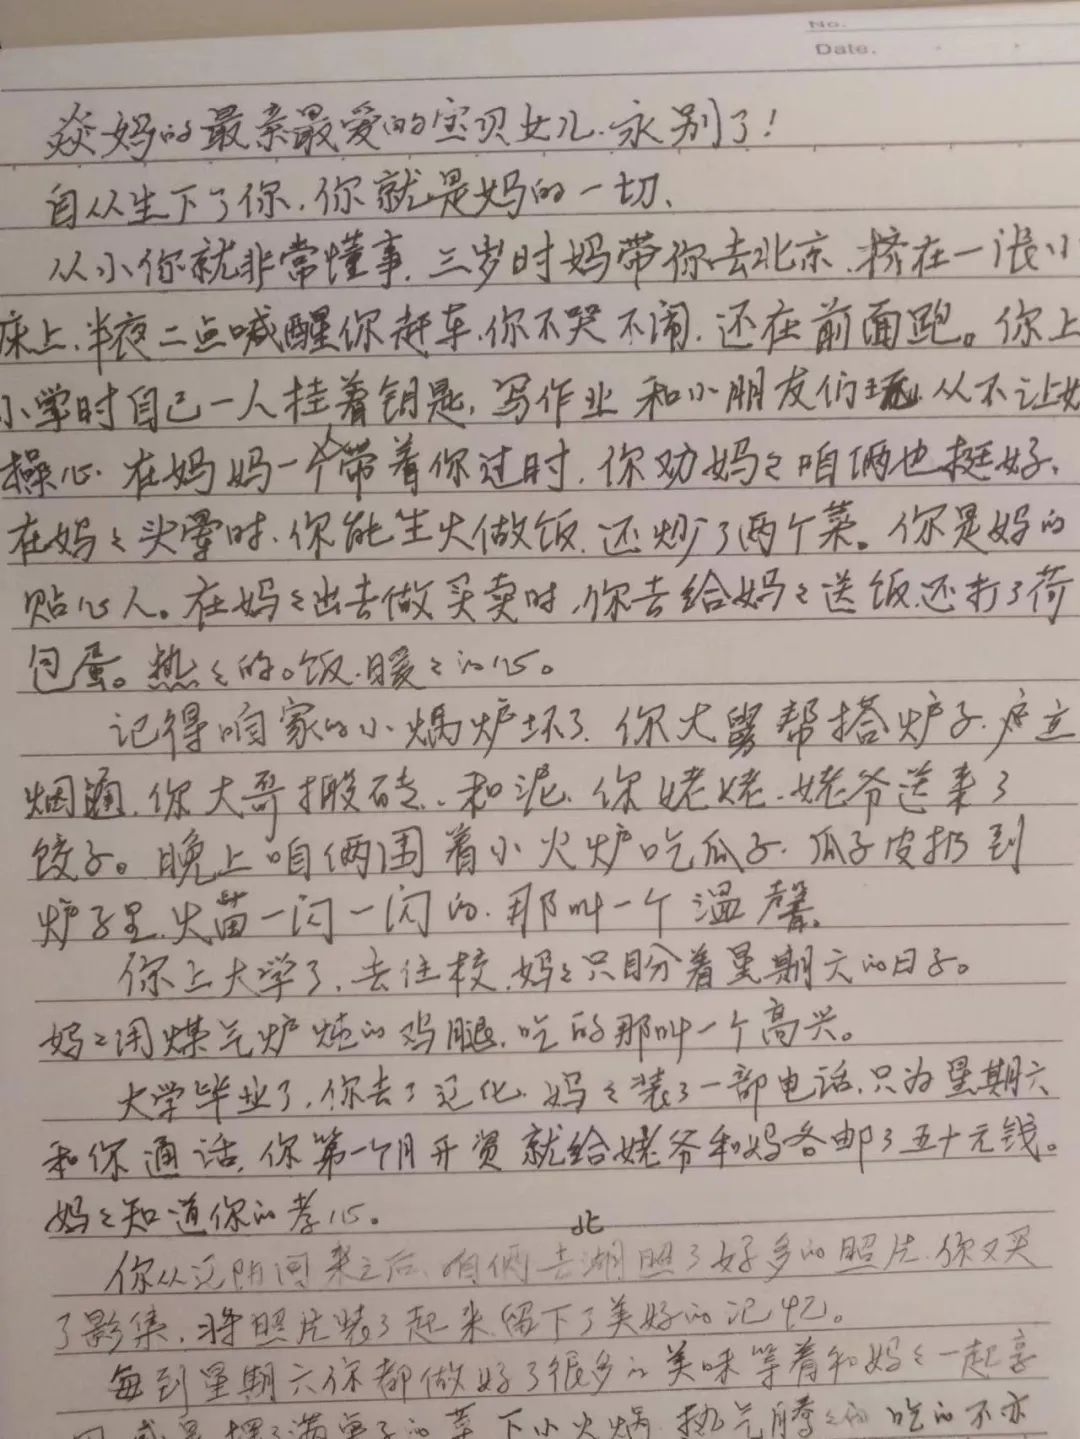 No.
Date.
焱妈的最亲最爱的宝贝女儿.永别了!
自从生下了你.你就是妈的一切、
从小你就非常懂事.三岁时妈带你去北京.挤在一张小
床上.半夜二点喊醒你赶车.你不哭不闹.还在前面跑。你上
小学时自己一人挂着钥匙,写作业和小朋友们玩.从不让妈
操心.在妈妈一个人带着你过时.你劝妈々咱俩也挺好.
在妈々头晕时.你能生火做饭.还炒了两个菜。你是妈的
贴心人。在妈々出去做买卖时,你去给妈々送饭.还打了荷
包蛋。热々的。饭.暖々的心。
记得咱家的小煱炉坏了.你大舅帮搭炉子.
烟囱.你大哥搬砖.和泥.你姥姥.姥爷送来了
饺子。晚上咱俩围着小火炉吃瓜子.瓜子皮扔到
炉子里.火苗一闪一闪的.那叫一个温馨。
你上大学了.去住校.妈々只盼着星期六的日子。
妈々用煤气炉炖的鸡腿.吃的那叫一个高兴。
大学毕业了.你去了辽化.妈々装了一部电话.只为星期六
和你通话.你第一个月开资就给姥爷和妈各邮了五十元钱。
妈々知道你的孝心。
你从辽阳回来之后.咱俩去北湖照了好多的照片.你又买
了影集.将照片装了起来.留下了美好的记忆。
每到星期六你都做好了很多的美味等着和妈々一起享
满桌子的菜.下小火锅.热气腾々的.吃的不亦